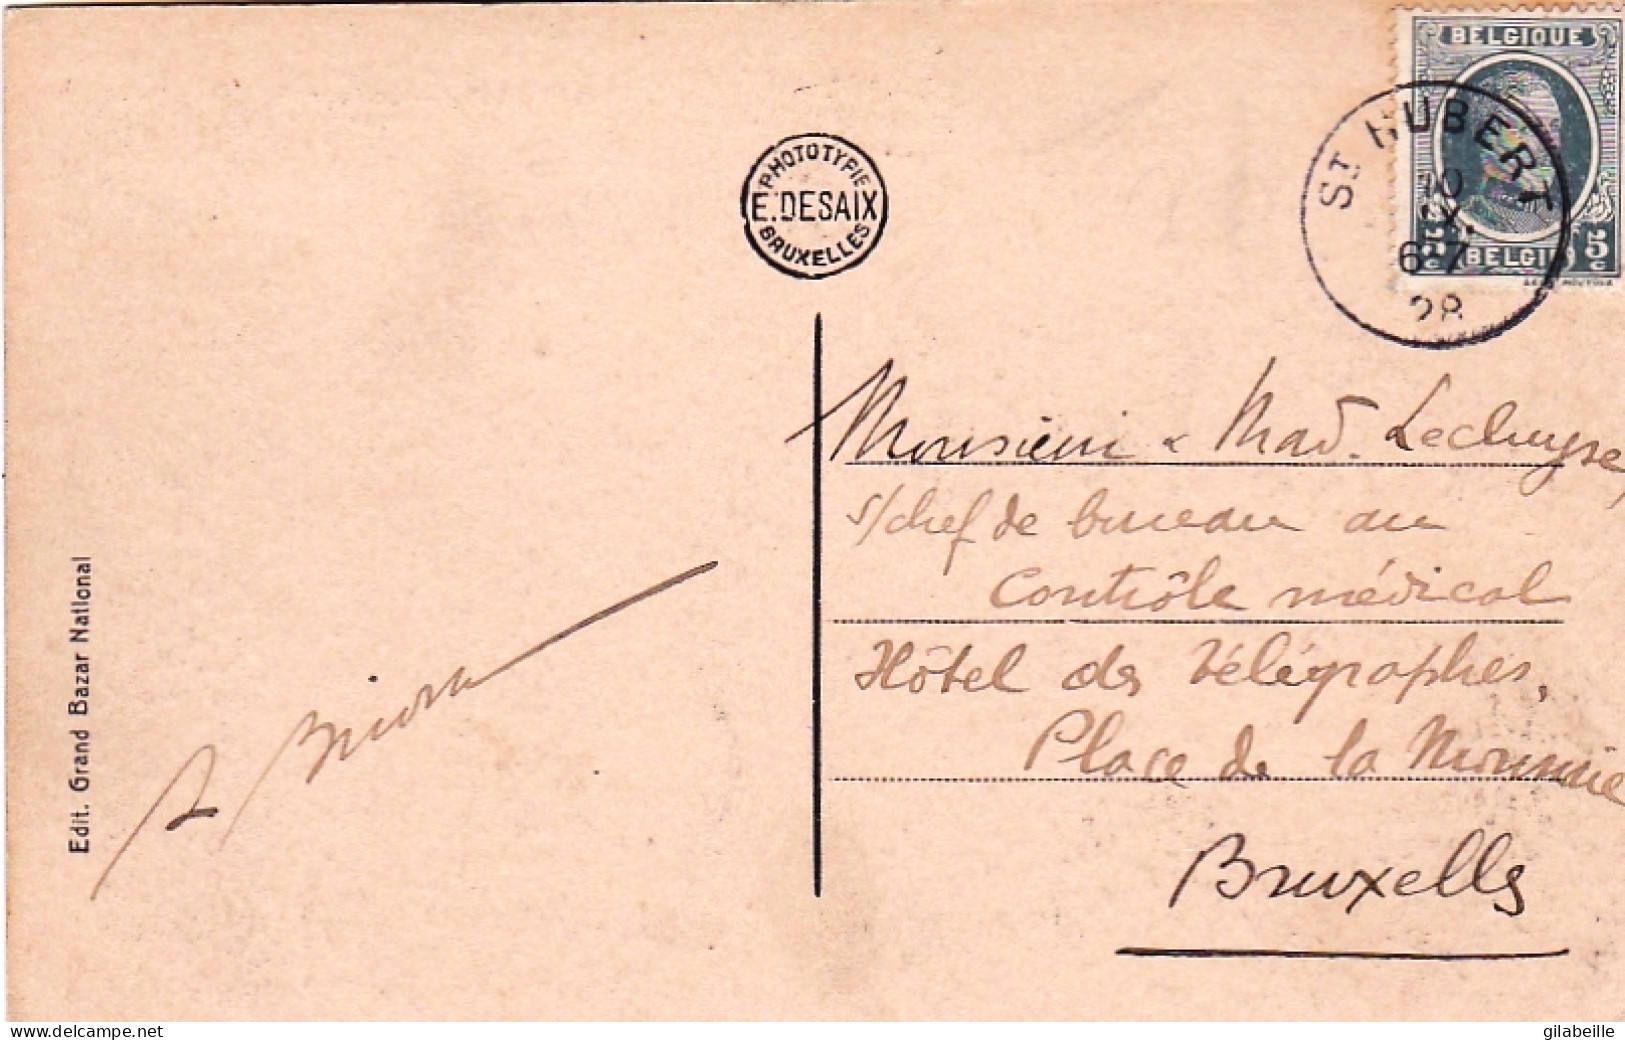 BELGIQUE
ST HUBERT
10
IX
6-7
28
5c BELGIË 5c
PHOTOTYPIE
E. DESAIX
BRUXELLES
Monsieur & Mad. Lecluyse,
s/chef de bureau au
Contrôle médical
Hôtel des Télégraphes,
Place de la Monnaie
Bruxelles
Edit. Grand Bazar National
delcampe.net
gilabeille